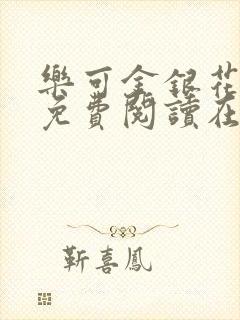 樂可金銀花
免費閱讀在
靳喜鳳